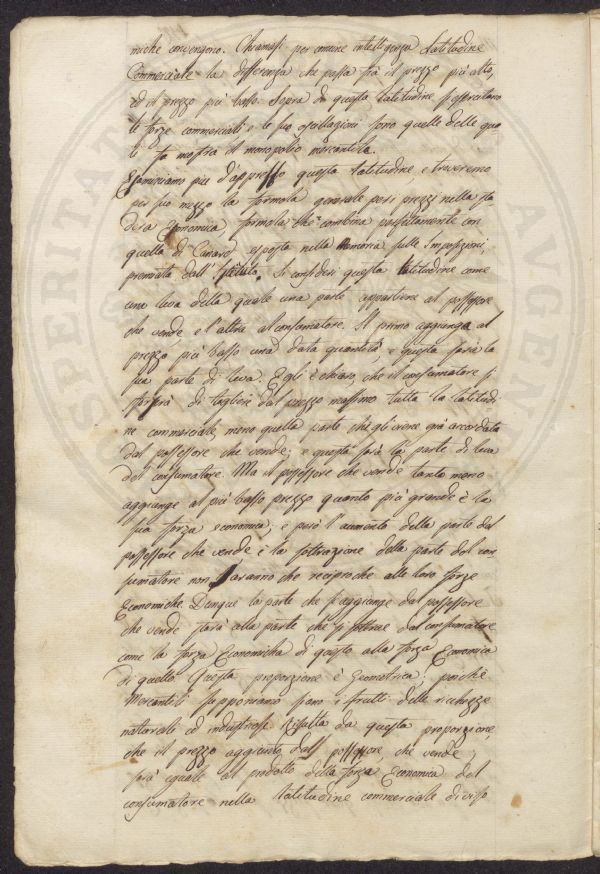 miche convengono. Chiamasi per comune intelligenza Latitudine
Commerciale la differenza che passa frà il prezzo più alto,
ed il prezzo più basso. Sopra di questa latitudine s'esercitano
le forze commerciali, e le sue oscillazioni sono quelle delle qua
le fa mostra il monopolio mercantile.
Esaminiamo più d'appresso questa latitudine, e troveremo
per suo mezzo la formola generale pei prezzi nella sta
dera Economica, formola che combina perfettamente con
quella di Canard, esposta nella memoria sulle Imposizioni,
premiata dall'Istituto. Si consideri questa latitudine come
una leva della quale una parte appartiene al possessore
che vende e l'altra al consumatore. Il primo aggiunga al
prezzo più basso una data quantità, e questa sarà la
sua parte di leva. Egli è chiaro, che il consumatore si
sforzerà di togliere dal prezzo massimo tutta la latitudi
ne commerciale, meno quella parte che gli viene già accordata
dal possessore che vende; e questa sarà la parte di leva
del consumatore. Ma il possessore che vende tanto meno
aggiunge al più basso prezzo quanto più grande è la
sua forza economica; e però l'aumento della parte del
possessore che vende, e la sottrazione della parte del con
sumatore non saranno che reciproche alle loro forze
Economiche. Dunque la parte che s'aggiunge dal possessore
che vende starà alla parte che si sottrae dal consumatore
come la forza Economica di questo alla forza Economica
di quello. Questa proporzione è Geometrica; poiché
Mercantili supponiamo sono i frutti delle ricchezze
naturali ed industriose. Risulta da questa proporzione
che il prezzo aggiunto dall possessore che vende,
sarà eguale al prodotto della forza Economica del
consumatore nella latitudine commerciale diviso
PROSPERITATI
AVGENDAE